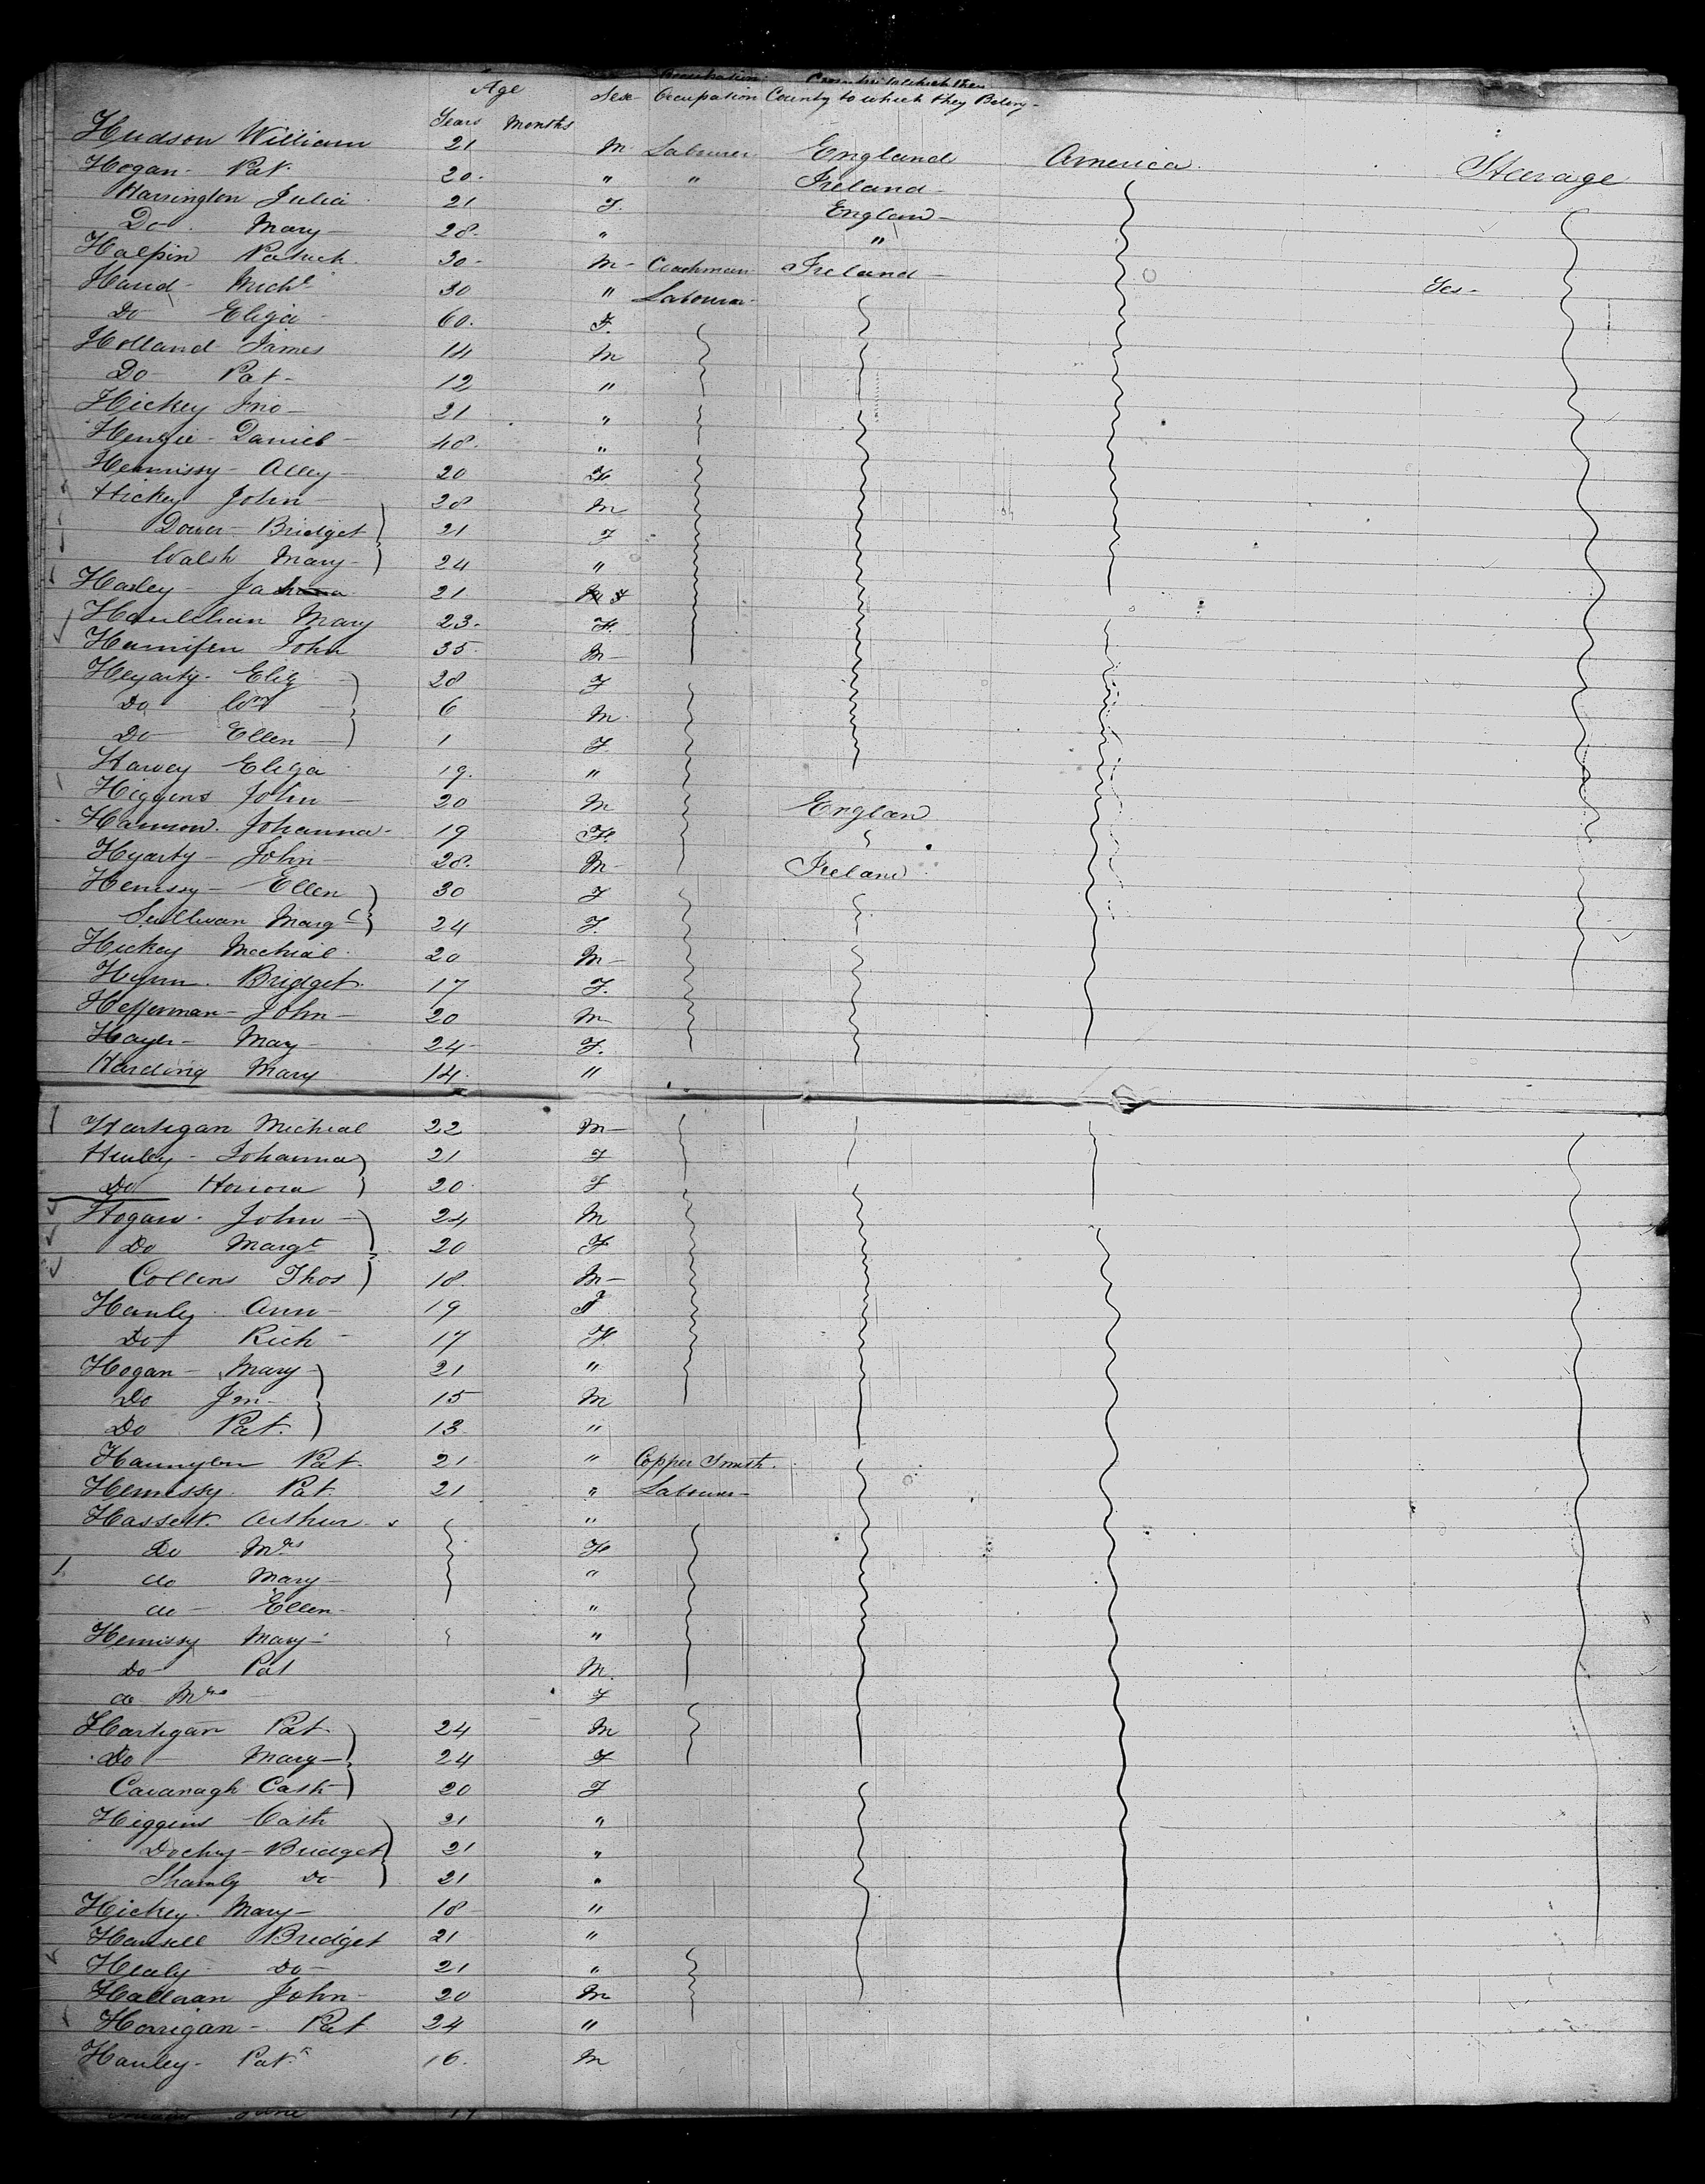 Age
Sex Occupation County to which they Belong-
Years Months
Hudson William 21 M Labourer England America Stearage
Hogan- Pat. 20- " " Ireland-
Harrington Julia 21 F. England-
Do. Mary- 28- " "
Halpin Patrick 30- M- Coachman Ireland-
Hand- Michl 30 " Labourer Yes-
Do Eliza 60. F.
Holland James 14 M
Do Pat- 12 "
Hickey Jno- 21 "
Daniel- 48- "
Hennissy- Alley- 20 F
Hickey John 28 M
Dower- Bridget 21 F
Walsh Mary- 24 "
Harley- Ja 21 F
Mary 23- F.
Hannifen John 35- M-
Hegarty- Eliz 28 F
Do Wm 6 M.
Do Ellen 1 F
Harvey Eliza 19. "
Higgins John- 20 M England
Johanna- 19 F.
Hyarty- John- 28. M- Ireland
Henessy- Ellen 30 F
Sullivan Margt 24 F.
Hickey Micheal 20 M-
Hynn. Bridget. 17 F.
Heffernan- John- 20 M
Hayes- May- 24- F.
Harding Mary 14. "
Hartigan Micheal 22 M-
Hurley- Johanna 21 F
Do Honora 20. F
Hogan. John- 24 M
Do Margt 20 F
Collins Thos 18. M-
Hanly. Ann- 19 F
Do Rich- 17 F.
Hogan- Mary- 21 "
Do Jno- 15 M
Do Pat. 13 "
Pat. 21 " Copper Smith.
Hennessy. Pat. 21 " Labourer-
Hassett. Arthur. "
Do Mrs F
do Mary- "
do- Ellen- "
Henissy Mary- "
Do- Pat M.
do Mrs- F
Hartigan Pat 24 M
Do- Mary- 24 F
Cavanagh Cath- 20 F
Higgins Cath 21 "
Bridget 21 "
Do- 21 "
Hickey. Mary- 18- "
Bridget 21 "
Healy Do- 21 "
Halloran John- 20 M
Horrigan- Pat 24 "
Hanley- Patk 16. M